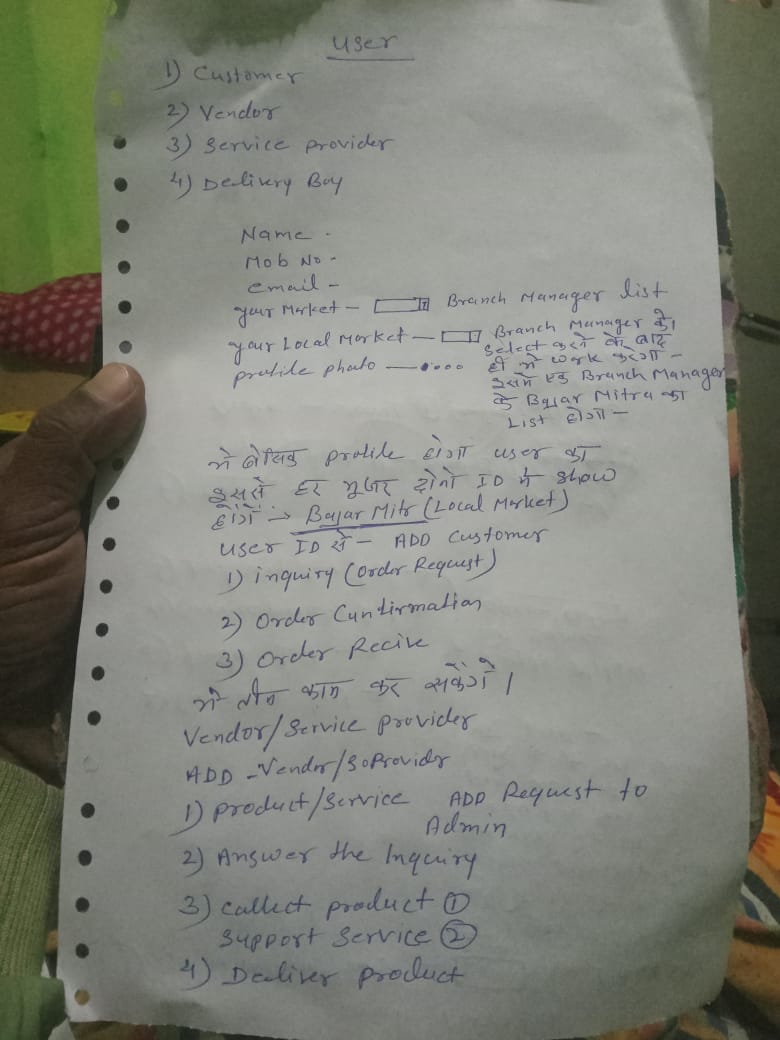 User
1) Customer
2) Vendor
3) Service provider
4) Delivery Boy
Name -
Mob No -
email -
your Market - Branch Manager list
your Local Market - Branch Manager को
Select करने के बाद
ही ये work करेगा -
profile photo -
इसमें एक Branch Manager
के Bajar Mitra का
List होगा -
ये बेसिक profile होगा user का
इससे हर यूजर दोनो ID में show
होंगें :→ Bajar Mitr (Local Market)
User ID से - ADD Customer
1) inquiry (Order Request)
2) Order Cunfirmation
3) Order Recive
ये तीन काम कर सकेंगें।
Vendor/Service provider
ADD - Vendor/S.Providr
1) product/Service ADD Request to
Admin
2) Answer the Inquiry
3) Collect product ①
Support Service ②
4) Deliver product